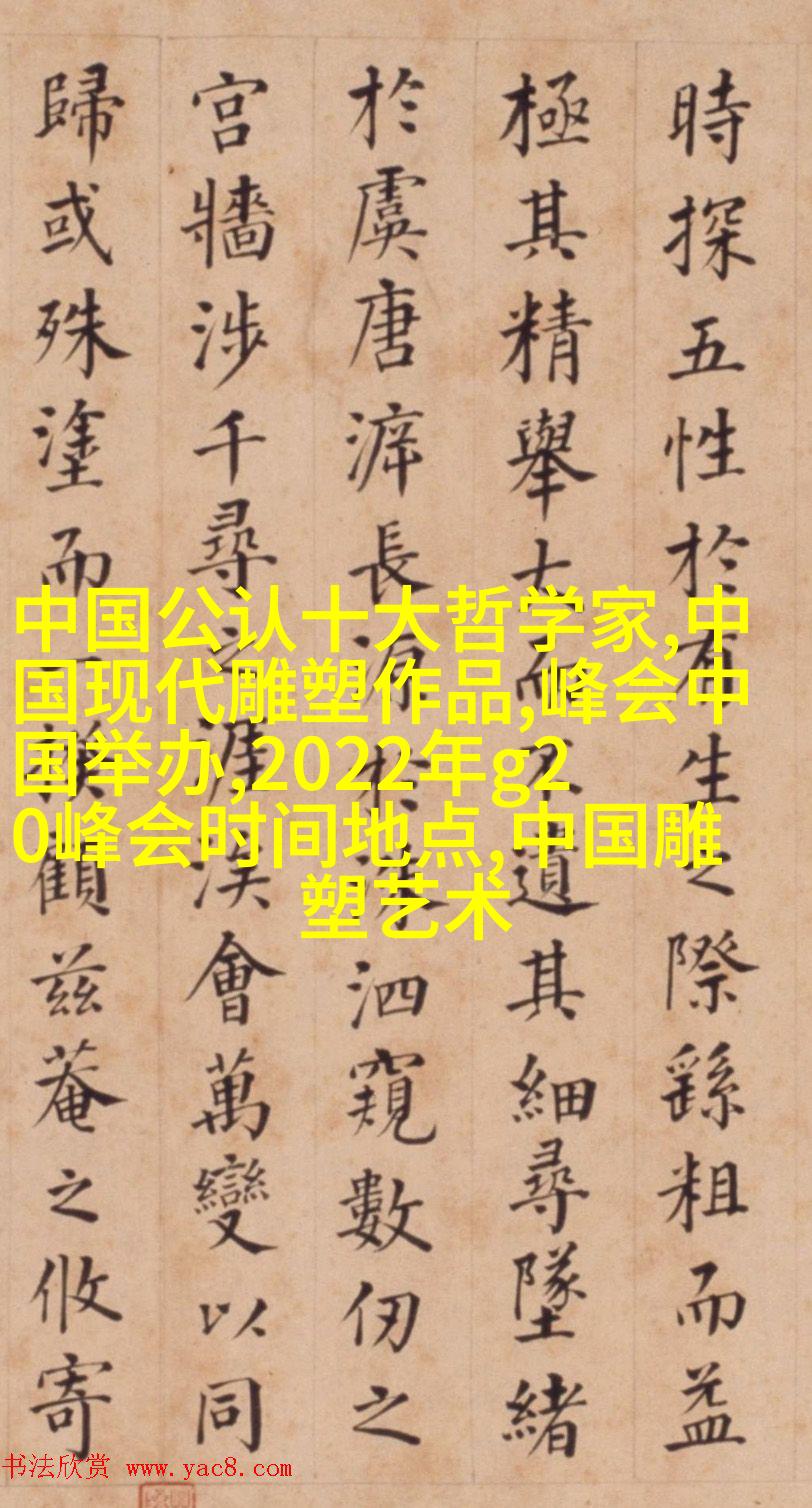 時探五性於有生之際繇粗而益
極其精舉大而不遺其細尋墜緒
於虞唐濬長源於洙泗窺數仞之
宮牆涉千尋之涯涘會萬變以同
歸或殊塗而一揆顧茲菴之攸寄
中国公认十大哲学家,中
国现代雕塑作品,峰会中
国举办,2022年g2
0峰会时间地点,中国雕
塑艺术
书法欣赏 www.yac8.com